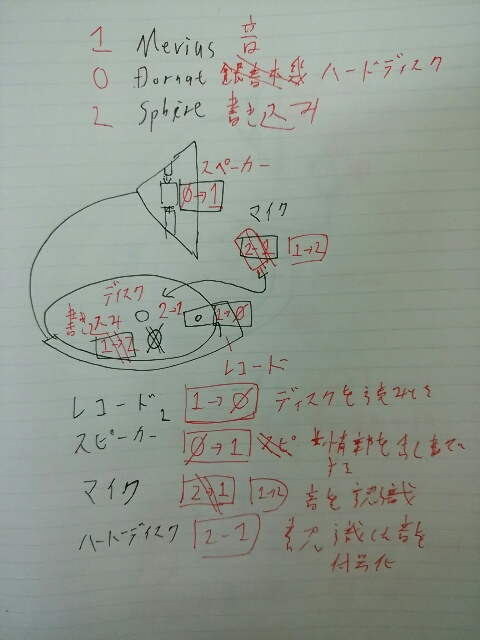 1 Mevius 音
0 Dornat ハードディスク
2 Sphère 書き込み
スペーカー
0→1
マイク
2-1 1→2
ディスク
2→1
書き込み
1→2
1→0
レコード
レコード 1→0 ディスクを読みとる
スピーカー 0→1
マイク 2→1 1→2 音を認識
ハードディスク 2-1 音を
符号化